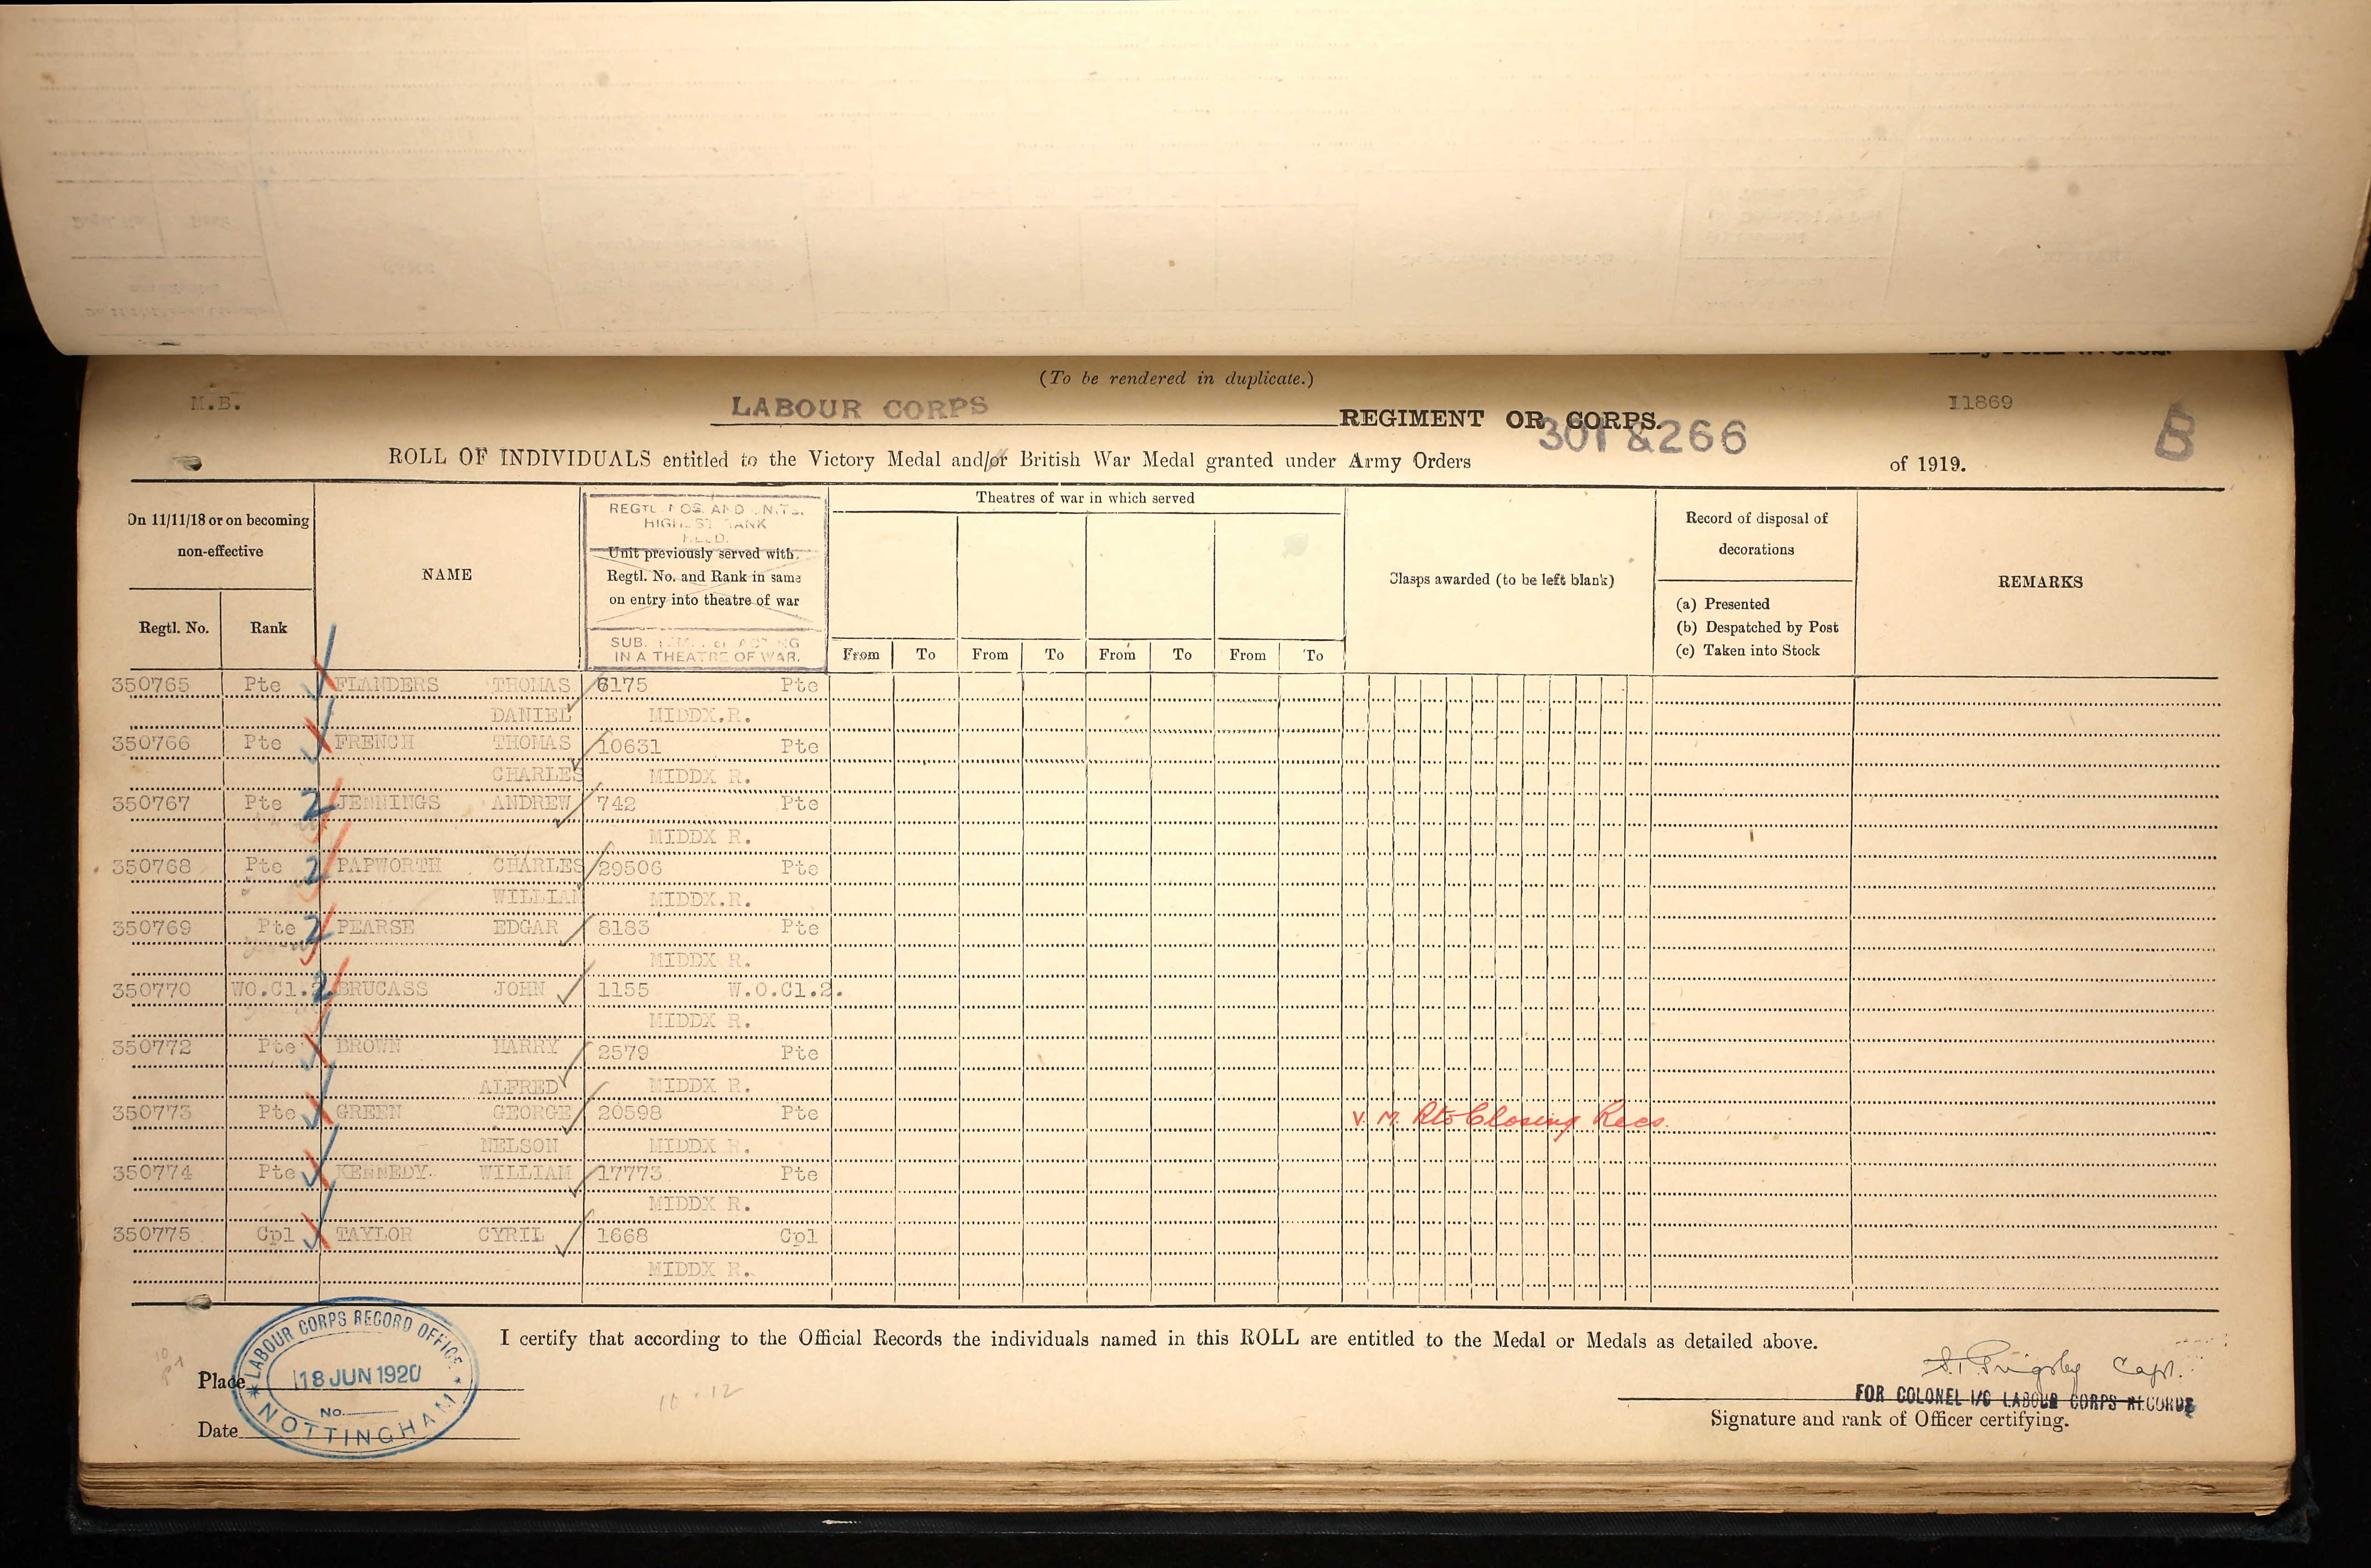 (To be rendered in duplicate.)
M.B.
LABOUR CORPS REGIMENT OR CORPS.
I1869
301 & 266
B
ROLL OF INDIVIDUALS entitled to the Victory Medal and/or British War Medal granted under Army Orders of 1919.
On 11/11/18 or on becoming non-effective
Regtl. No.
Rank
NAME
REGTL NOS. AND UNITS.
HIGHEST RANK
HELD.
Unit previously served with.
Regtl. No. and Rank in same
on entry into theatre of war
IN A THEATRE OF WAR.
Theatres of war in which served
From To From To From To From To
Clasps awarded (to be left blank)
Record of disposal of
decorations
(a) Presented
(b) Despatched by Post
(c) Taken into Stock
REMARKS
350765 Pte FLANDERS THOMAS 6175 Pte
DANIEL MIDDX.R.
350766 Pte FRENCH THOMAS 10631 Pte
CHARLES MIDDX R.
350767 Pte 2 JENNINGS ANDREW 742 Pte
MIDDX R.
350768 Pte 2 PAPWORTH CHARLES 29506 Pte
WILLIAM MIDDX.R.
350769 Pte 2 PEARSE EDGAR 8183 Pte
MIDDX R.
350770 WO.Cl.2. 2 BRUCASS JOHN 1155 W.O.Cl.2.
MIDDX R.
350772 Pte BROWN HARRY 2579 Pte
ALFRED MIDDX R.
350773 Pte GREEN GEORGE 20598 Pte V. M. Rto Closing Recs.
NELSON MIDDX R.
350774 Pte KENNEDY. WILLIAM 17773 Pte
MIDDX R.
350775 Cpl TAYLOR CYRIL 1668 Cpl
MIDDX R.
I certify that according to the Official Records the individuals named in this ROLL are entitled to the Medal or Medals as detailed above.
LABOUR CORPS RECORD OFFICE
18 JUN 1920
No.
NOTTINGHAM
Place
Date
10.12
Capt.
FOR COLONEL I/C LABOUR CORPS RECORDS
Signature and rank of Officer certifying.